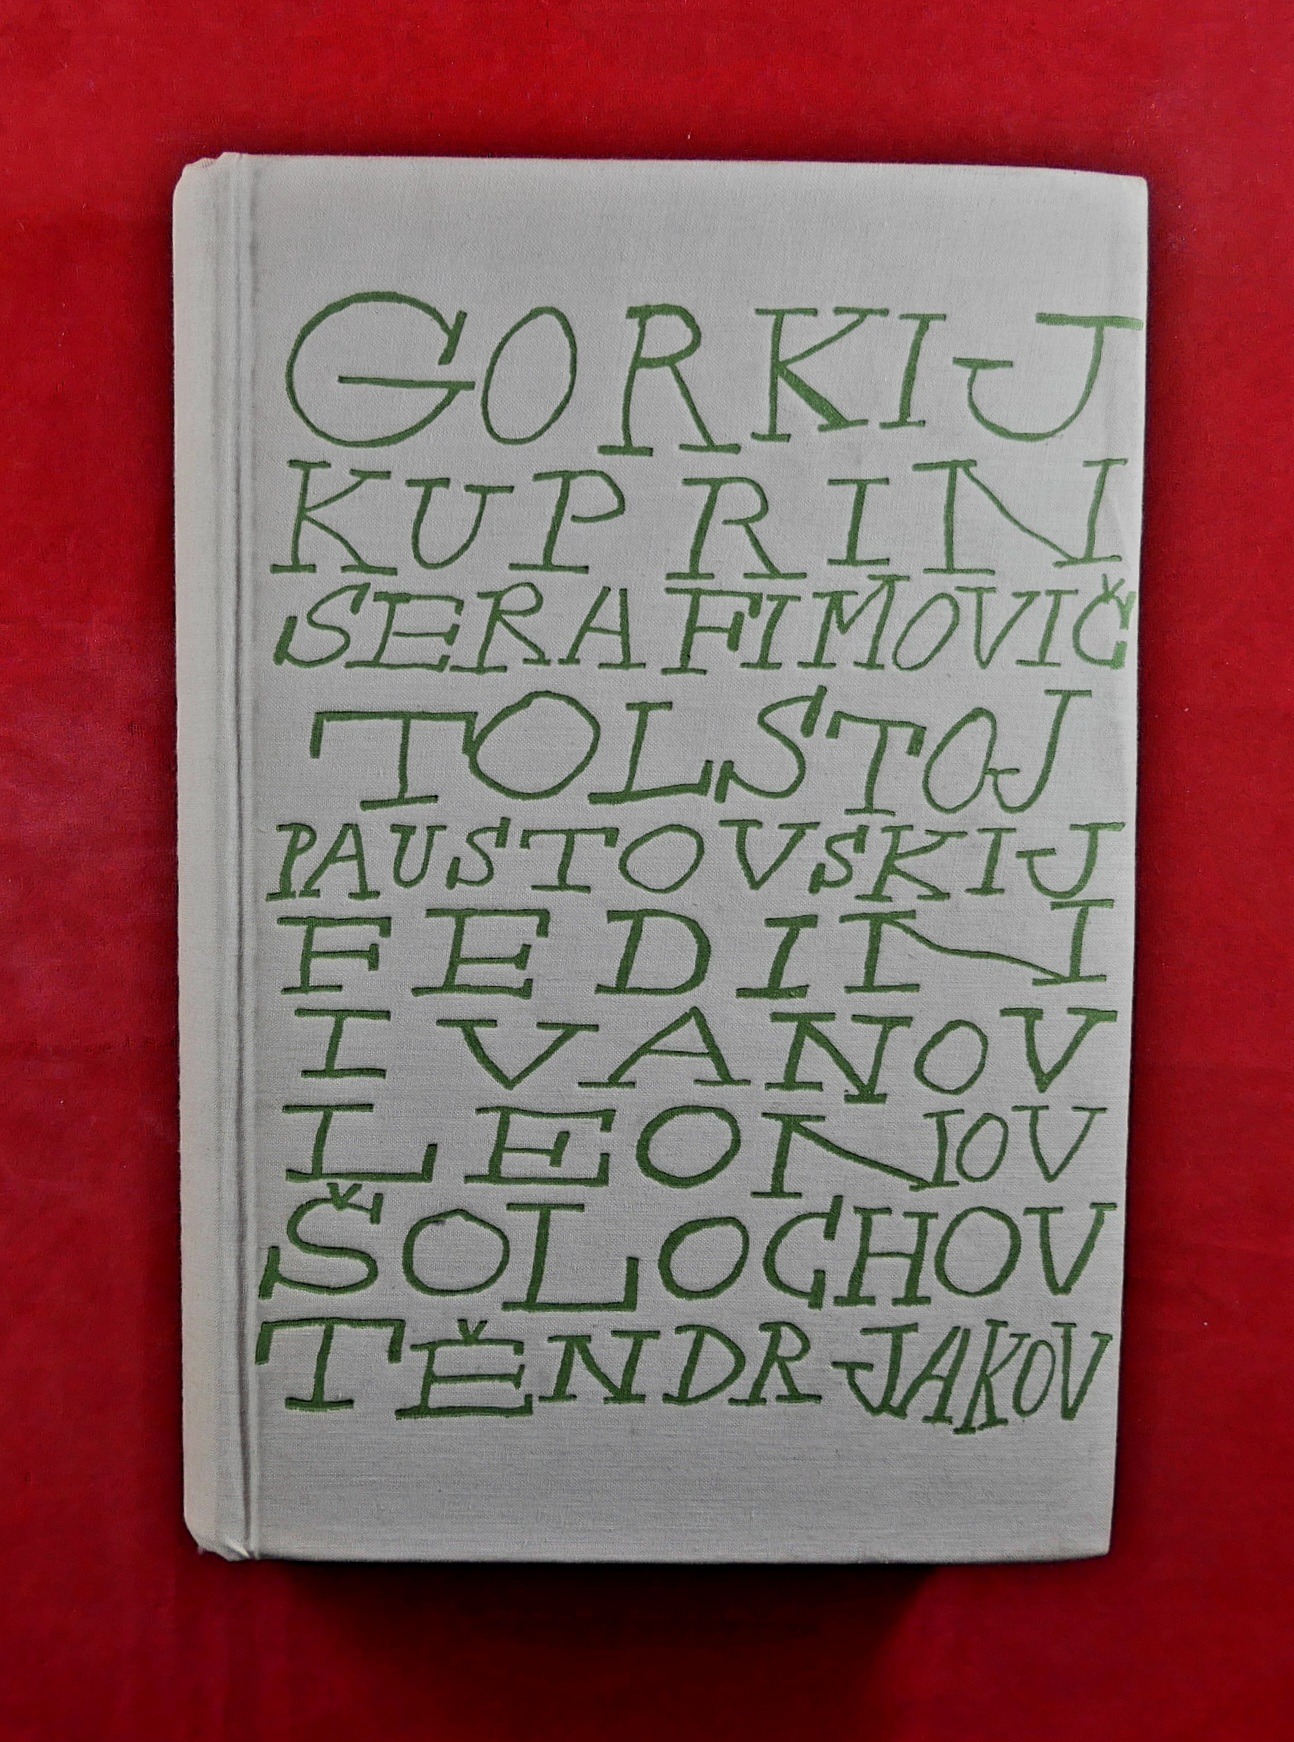 GORKIJ
KUPRIN
SERAFIMOVIČ
TOLSTOJ
PAUSTOVSKIJ
FEDIN
IVANOV
LEONOV
ŠOLOCHOV
TĚNDRJAKOV